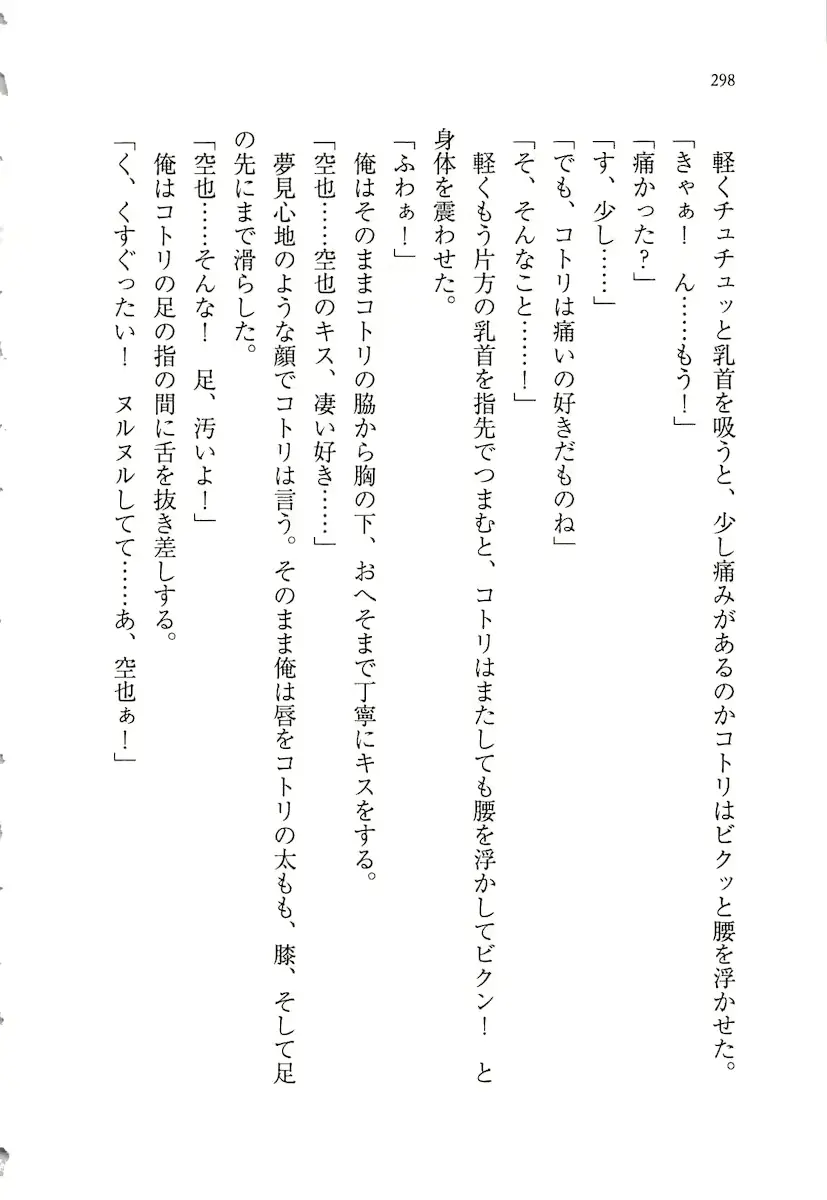 298
軽くチュチュッと乳首を吸うと、少し痛みがあるのかコトリはビクッと腰を浮かせた。
「きゃぁ！　ん……もう！」
「痛かった？」
「す、少し……」
「でも、コトリは痛いの好きだものね」
「そ、そんなこと……！」
軽くもう片方の乳首を指先でつまむと、コトリはまたしても腰を浮かしてビクン！　と
身体を震わせた。
「ふわぁ！」
俺はそのままコトリの脇から胸の下、おへそまで丁寧にキスをする。
「空也……空也のキス、凄い好き……」
夢見心地のような顔でコトリは言う。そのまま俺は唇をコトリの太もも、膝、そして足
の先にまで滑らした。
「空也……そんな！　足、汚いよ！」
俺はコトリの足の指の間に舌を抜き差しする。
「く、くすぐったい！　ヌルヌルしてて……あ、空也ぁ！」